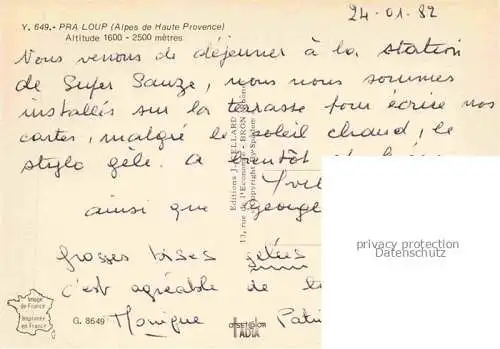 Y. 649.- PRA-LOUP (Alpes de Haute Provence)
Altitude 1600 - 2500 mètres
24-01-82
Nous venons de déjeuner à la station
de Super Sauze, nous nous sommes
installés sur la terrasse pour écrire nos
cartes, malgré le soleil chaud, le
stylo gèle. A bientôt
Yvel
ainsi que George
grosses bises gelées
c'est agréable de
Monique Patri
Editions J. CELLARD - BRON
13, rue de l'Economie
Copyright by
privacy protection
Datenschutz
Image
de France
Imprimée
en France
G. 8649
OFFSET COLOR
IADIA